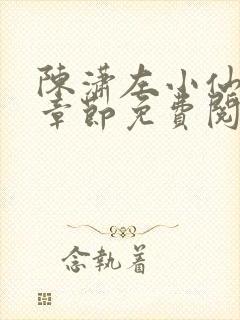 陳瀟左小仙
章節免費閱
念執着